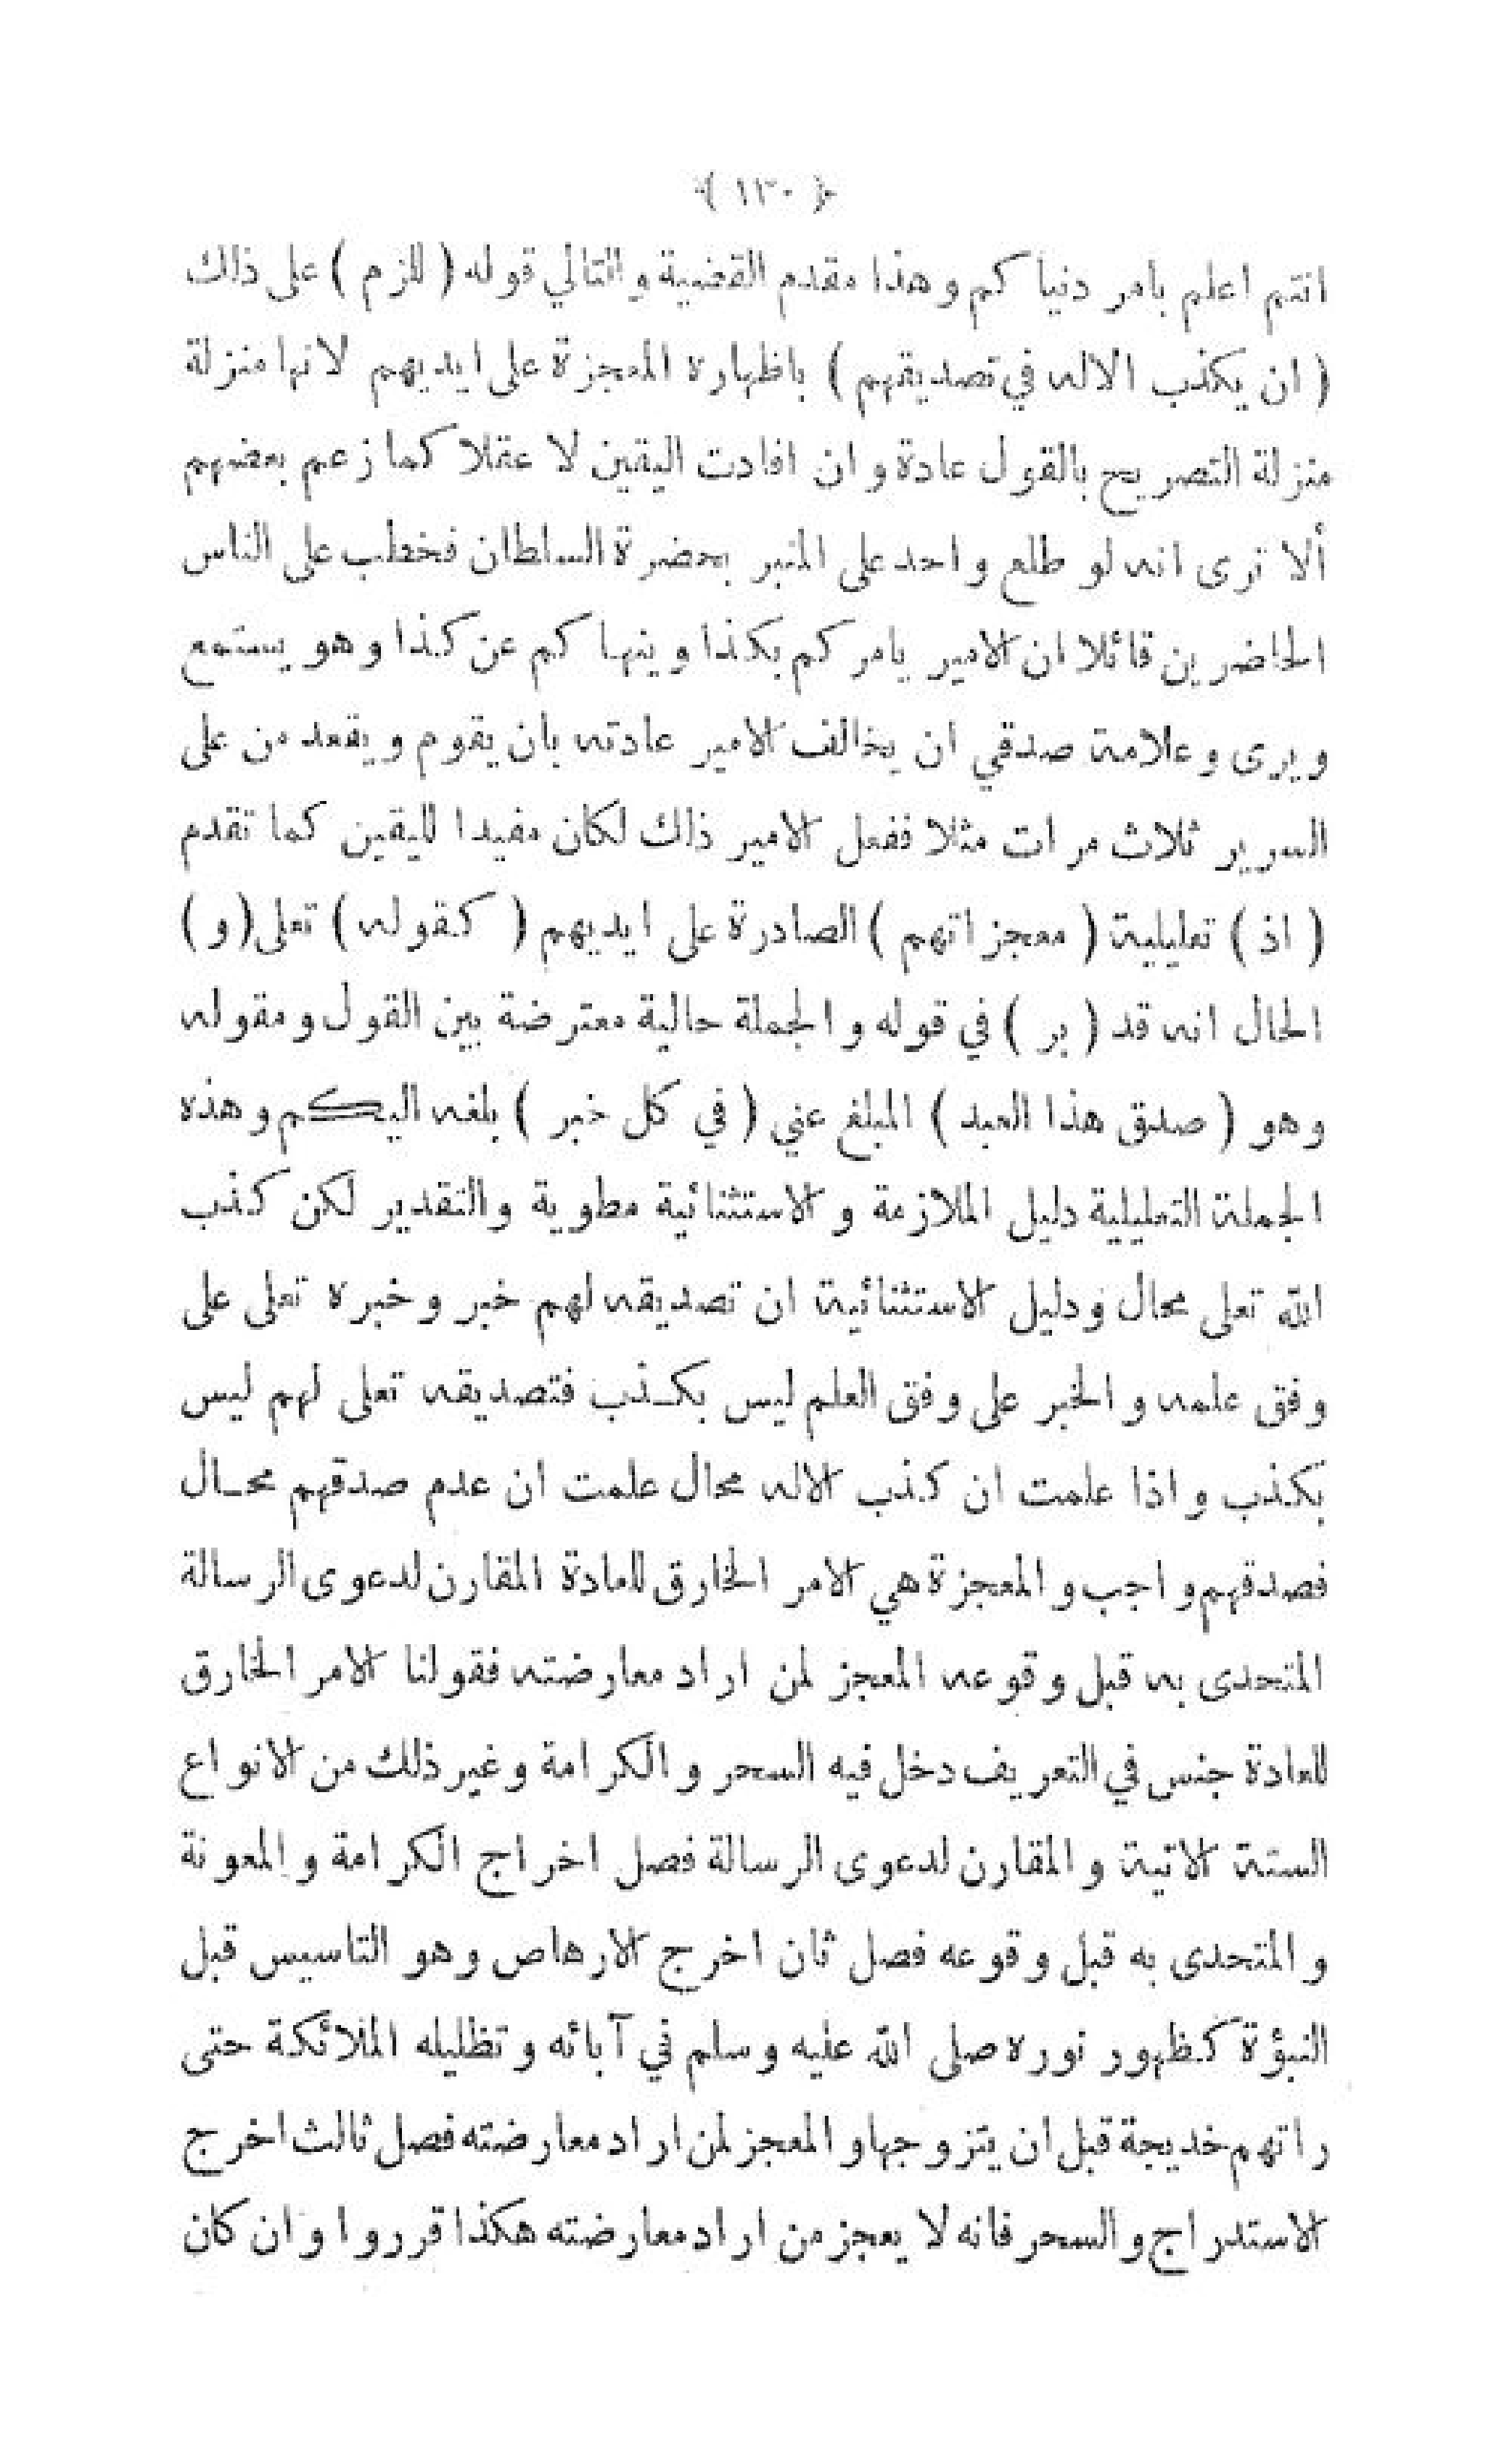 ﴿ ١٣٠ ﴾
انتم اعلم بامر دنياكم وهذا مقدم القضية والتالي قوله ( للزم ) على ذلك
( ان يكذب الاله في تصديقهم ) باظهاره المعجزة على ايديهم لانها منزلة
منزلة التصريح بالقول عادة وان افادت اليقين لا عقلا كما زعم بعضهم
ألا ترى انه لو طلع واحد على المنبر بحضرة السلطان فخطب على الناس
الحاضرين قائلا ان الامير يامركم بكذا وينهاكم عن كذا وهو يستمع
ويرى وعلامة صدقي ان يخالف الامير عادته بان يقوم ويقعد من على
السرير ثلاث مرات مثلا ففعل الامير ذلك لكان مفيدا لليقين كما تقدم
( اذ ) تعليلية ( معجزاتهم ) الصادرة على ايديهم ( كقوله ) تعلى ( و )
الحال انه قد ( بر ) في قوله والجملة حالية معترضة بين القول ومقوله
وهو ( صدق هذا العبد ) المبلغ عني ( في كل خبر ) بلغه اليكم وهذه
الجملة التعليلية دليل الملازمة والاستثنائية مطوية والتقدير لكن كذب
الله تعلى محال ودليل الاستثنائية ان تصديقه لهم خبر وخبره تعلى على
وفق علمه والخبر على وفق العلم ليس بكذب فتصديقه تعلى لهم ليس
بكذب واذا علمت ان كذب الاله محال علمت ان عدم صدقهم محال
فصدقهم واجب والمعجزة هي الامر الخارق للعادة المقارن لدعوى الرسالة
المتحدى به قبل وقوعه المعجز لمن اراد معارضته فقولنا الامر الخارق
للعادة جنس في التعريف دخل فيه السحر والكرامة وغير ذلك من الانواع
الستة الاتية والمقارن لدعوى الرسالة فصل اخراج الكرامة والمعونة
والمتحدى به قبل وقوعه فصل ثان اخرج الارهاص وهو التاسيس قبل
النبؤة كظهور نوره صلى الله عليه وسلم في آبائه وتظليله الملائكة حتى
راتهم خديجة قبل ان يتزوجها والمعجز لمن اراد معارضته فصل ثالث اخرج
الاستدراج والسحر فانه لا يعجز من اراد معارضته هكذا قرروا وان كان